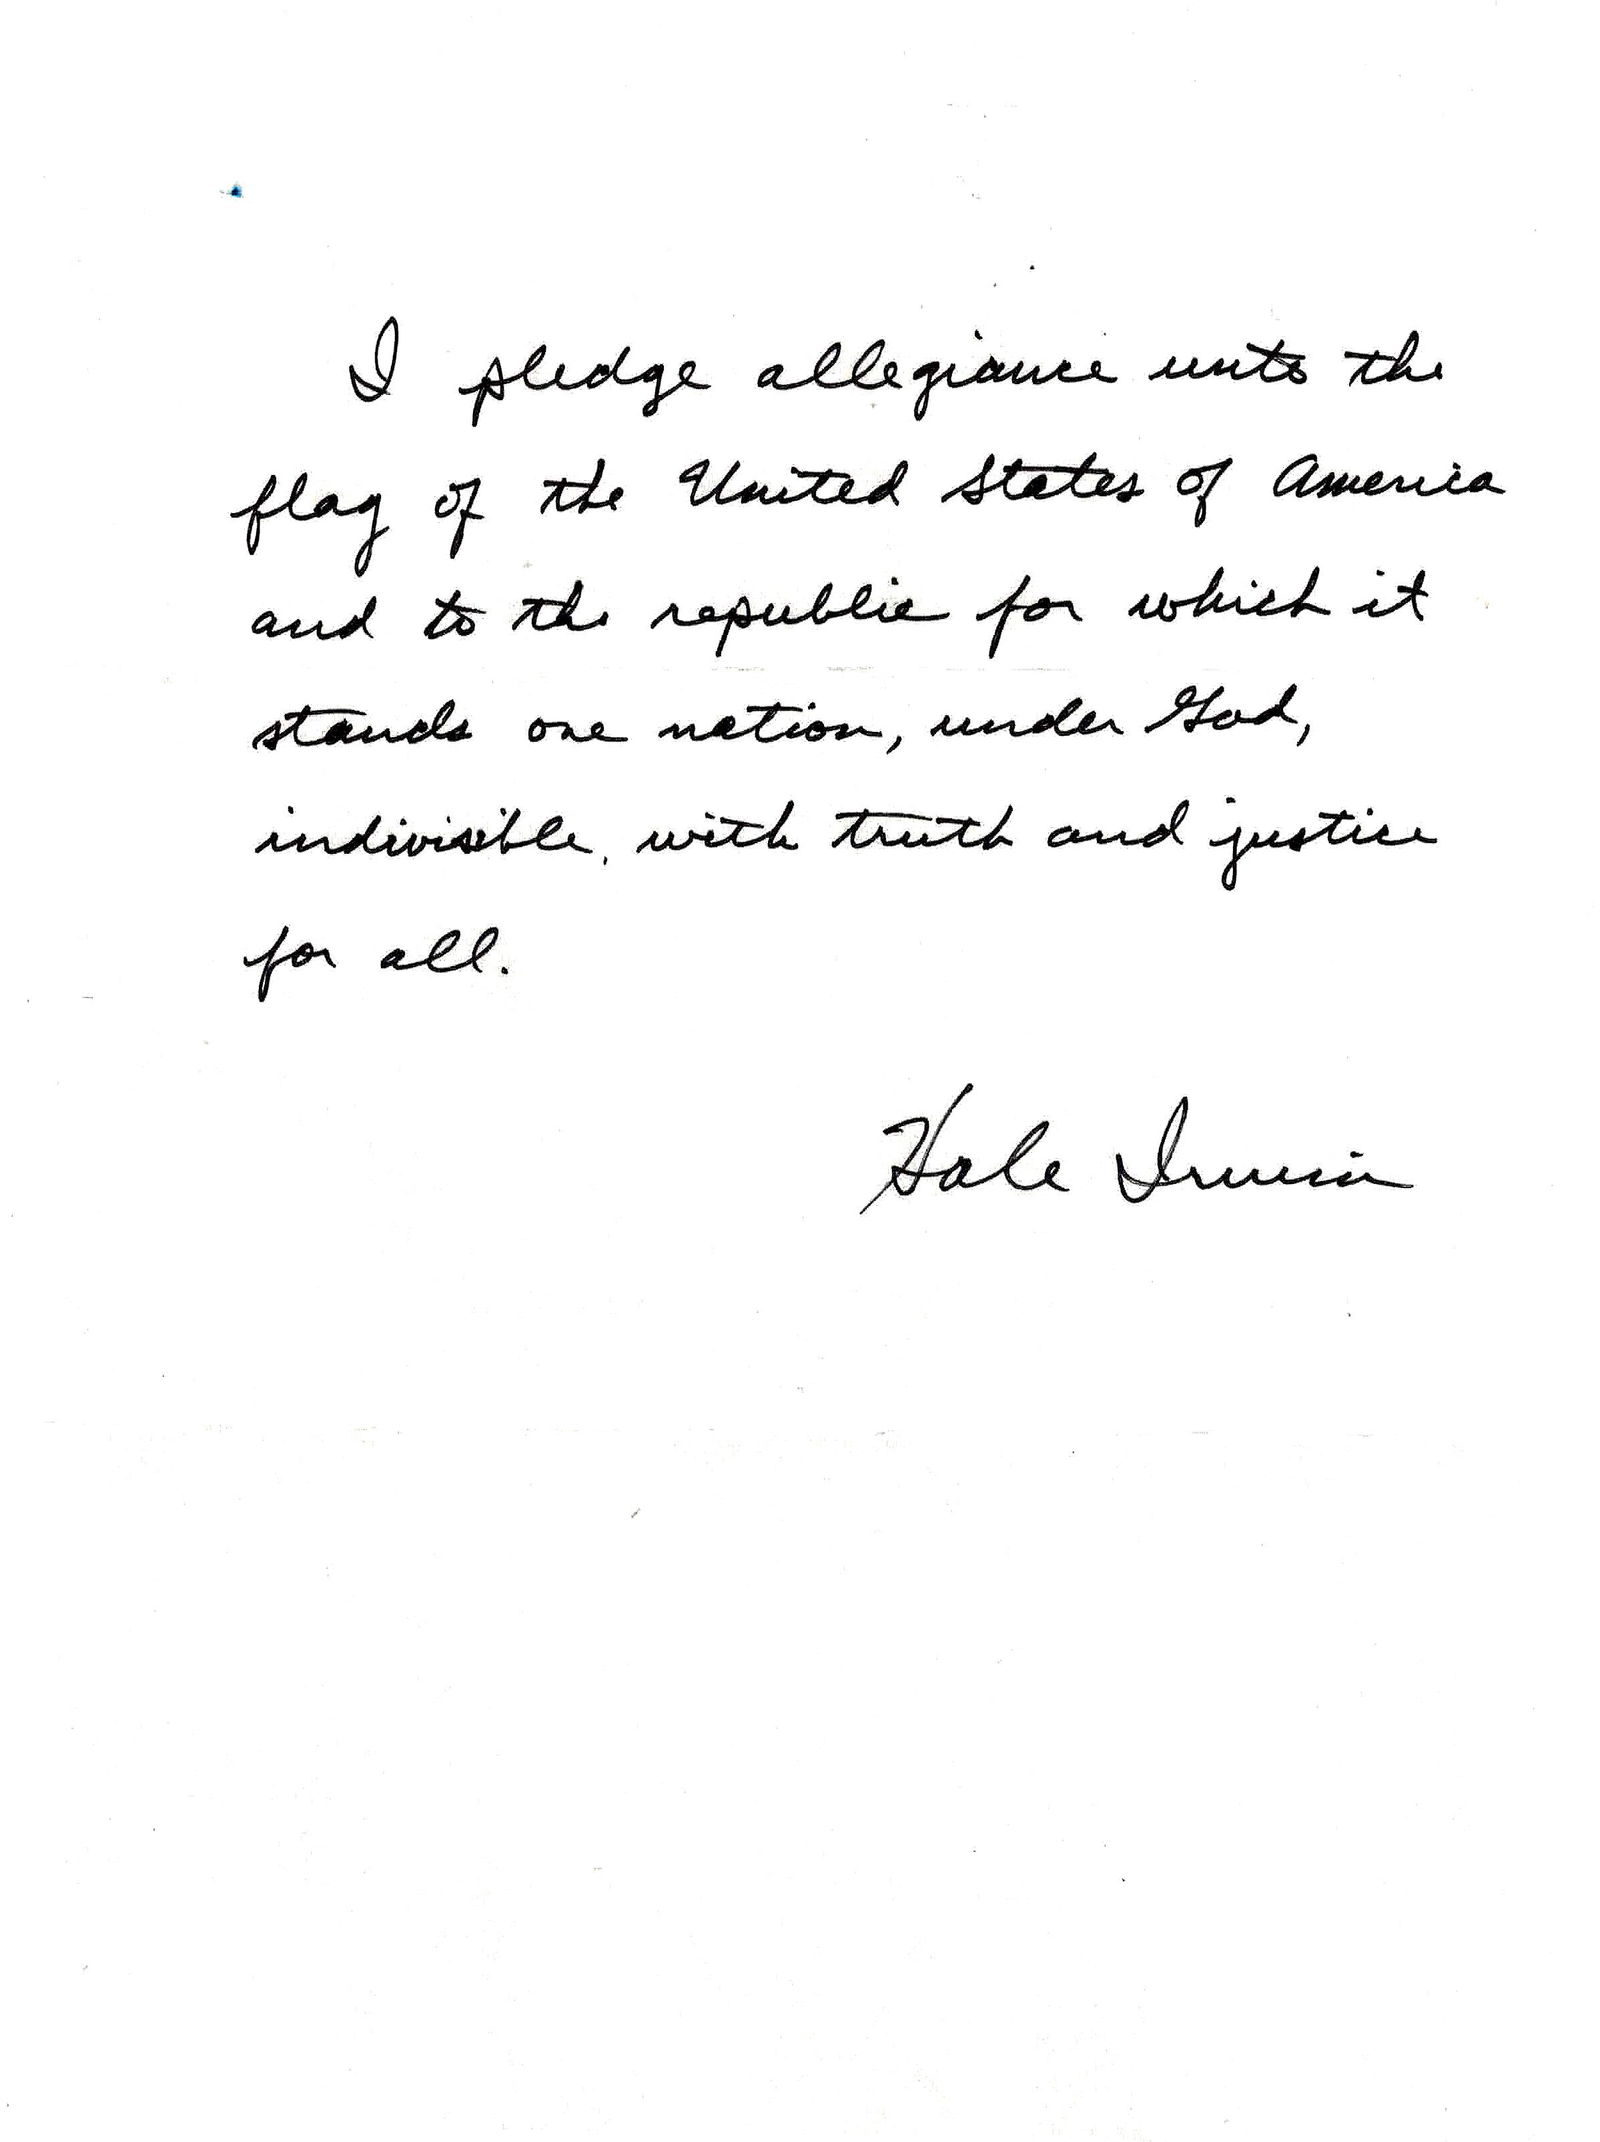 I pledge allegiance unto the
flag of the United States of America
and to the republic for which it
stands one nation, under God,
indivisible, with truth and justice
for all.
Hale Irwin